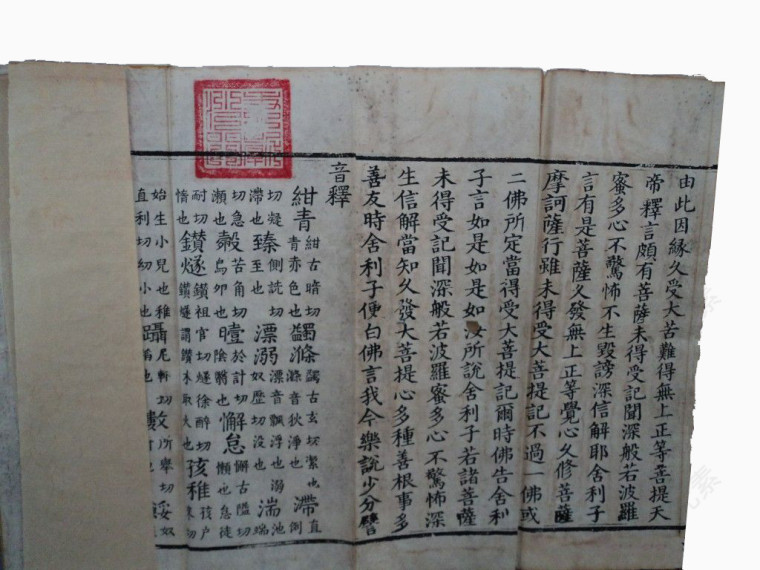 由此因緣久受大苦難得無上正等菩提天
帝釋言頗有菩薩未得受記聞深般若波羅
蜜多心不驚怖不生毀謗深信解耶舍利子
言有是菩薩久發無上正等覺心久修菩薩
摩訶薩行雖未得受大菩提記不過一佛或
二佛所定當得受大菩提記爾時佛告舍利
子言如是如是如汝所說舍利子若諸菩薩
未得受記聞深般若波羅蜜多心不驚怖深
生信解當知久發大菩提心多種善根事多
善友時舍利子便白佛言我今樂說少分譬
音釋
紺青 紺古暗切 青赤色也 蠲滌 蠲古玄切潔也 滌音狄淨也 滯 直側
切凝滯也 臻 側詵切至也 漂溺 漂音飄浮也 溺奴歷切沒也 湍
瀨也 㲉 苦角切 曀 於計切陰翳也 懈怠 懈古隘切懶也 怠徒
耐切惰也 鑽燧 鑽祖官切 燧徐醉切 鑽燧謂鑽木取火也 孩稚 孩戶
始生小兒也 稚直利切幼小也 躡 尼輒切蹈也 數 所舉切